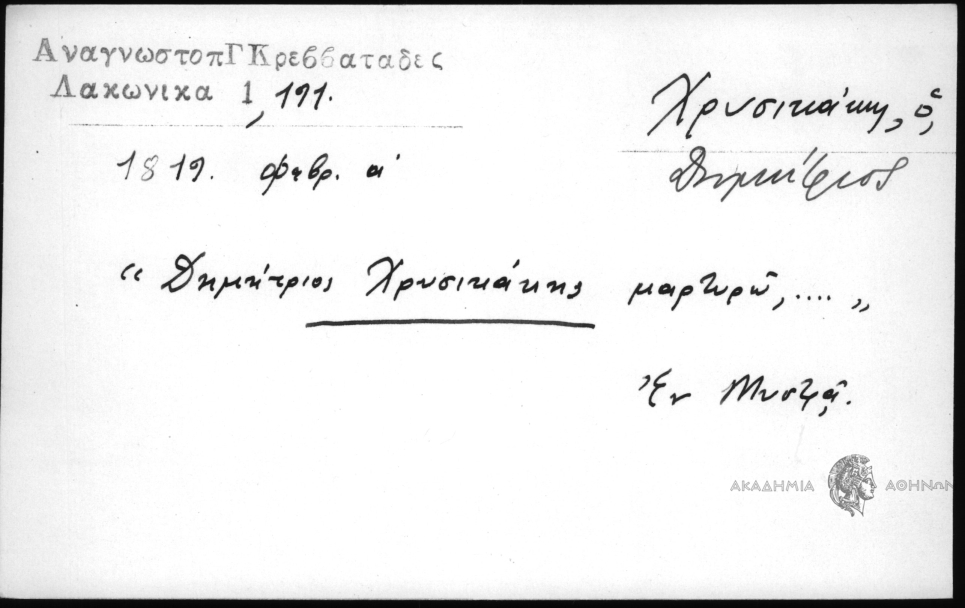 ΑναγνωστοπΓΚρεββαταδες
Λακωνικα 1, 191.
Χρυσικάκης, ὁ,
Δημήτριος
1819. Φεβρ. α'
“ Δημήτριος Χρυσικάκης μαρτυρῶ, .... „
Ἐν Μυστρᾷ.
ΑΚΑΔΗΜΙΑ ΑΘΗΝΩΝ